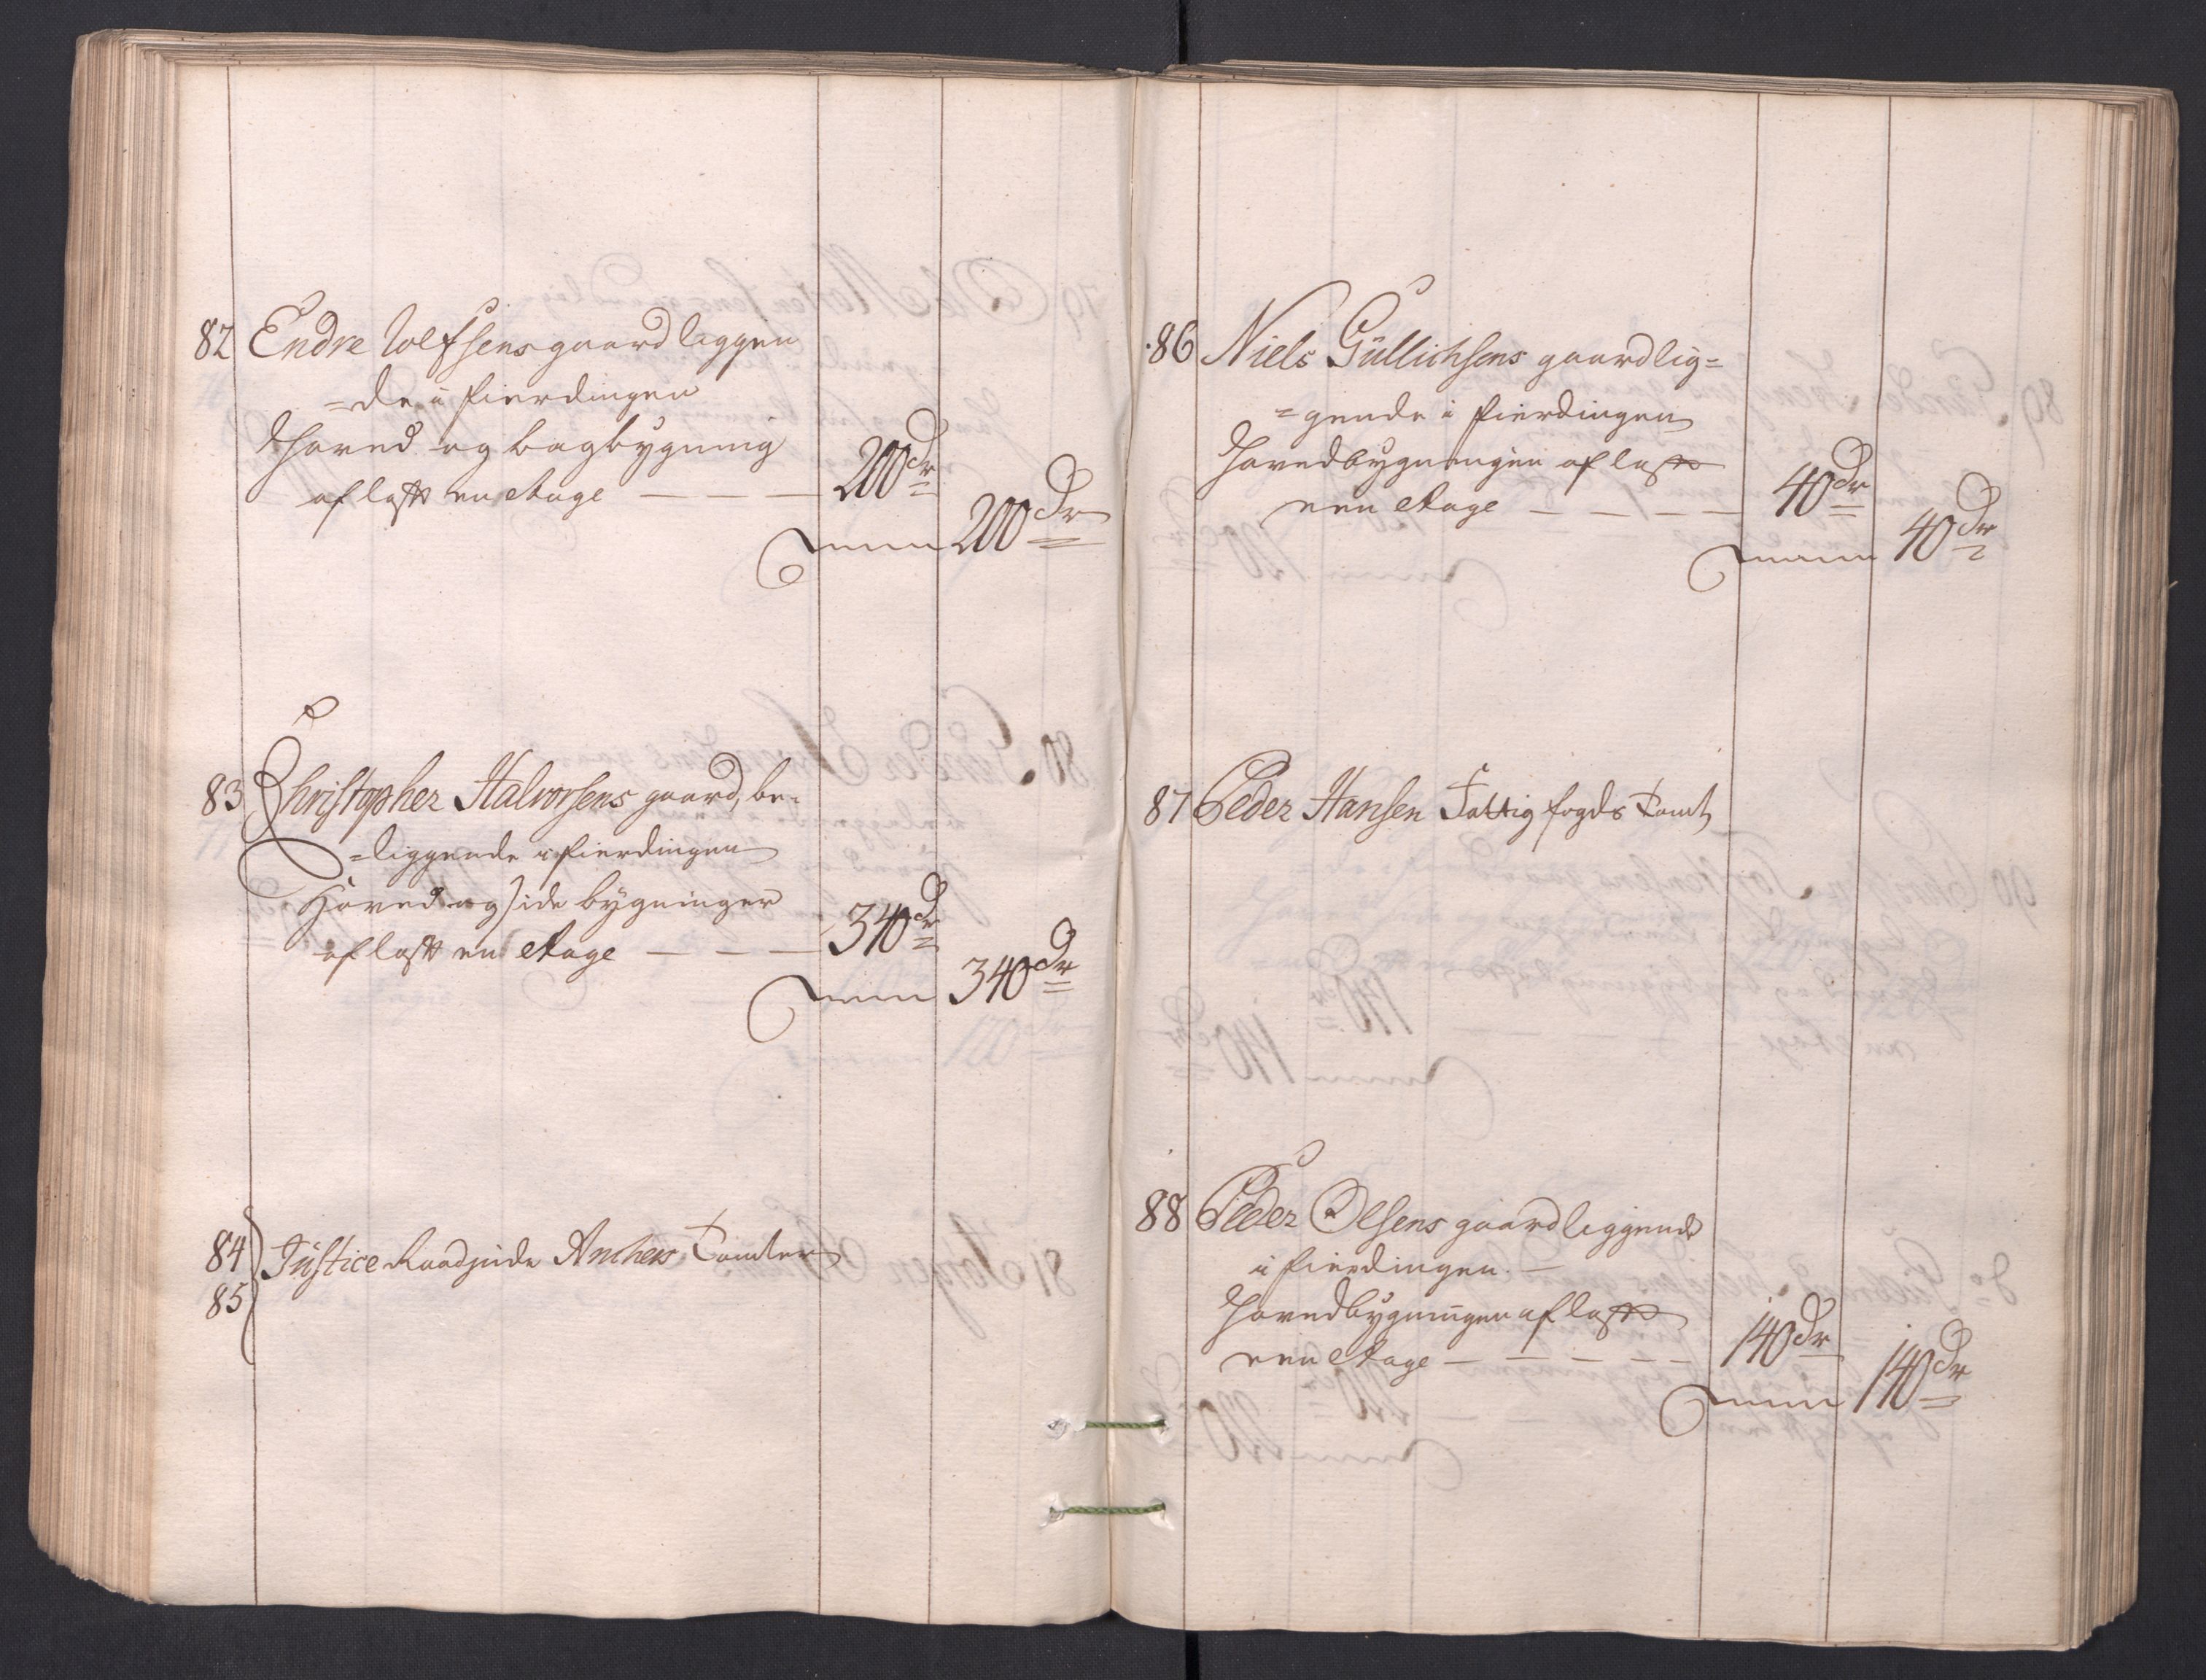 82 Endre Wolfsens gaard leggen
=de i fierdingen
Hoved og bagbygning
af laft en etage — — — 200 dr
200 dr
83 Christopher Halvorsens gaard, be-
=liggende i fierdingen
Hoved og side bygninger
af laft en etage — — — 340 dr
340 dr
84
85 Justice Raadinde Anchers Tomter
86 Niels Gullichsens gaard lig=
=gende i fierdingen
Hovedbygningen af laft
een etage — — — — 40 dr
40 dr
87 Peder Hansen Fattig fogds Tomt
88 Peder Olsens gaard leggende
i fierdingen. —
Hovedbygningen af laft
een etage — — — — — 140 dr
140 dr